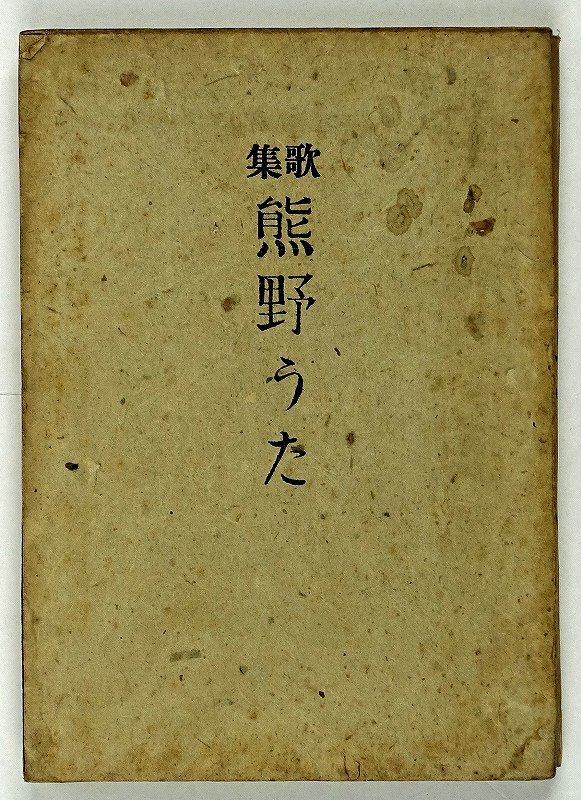 歌集
熊野うた